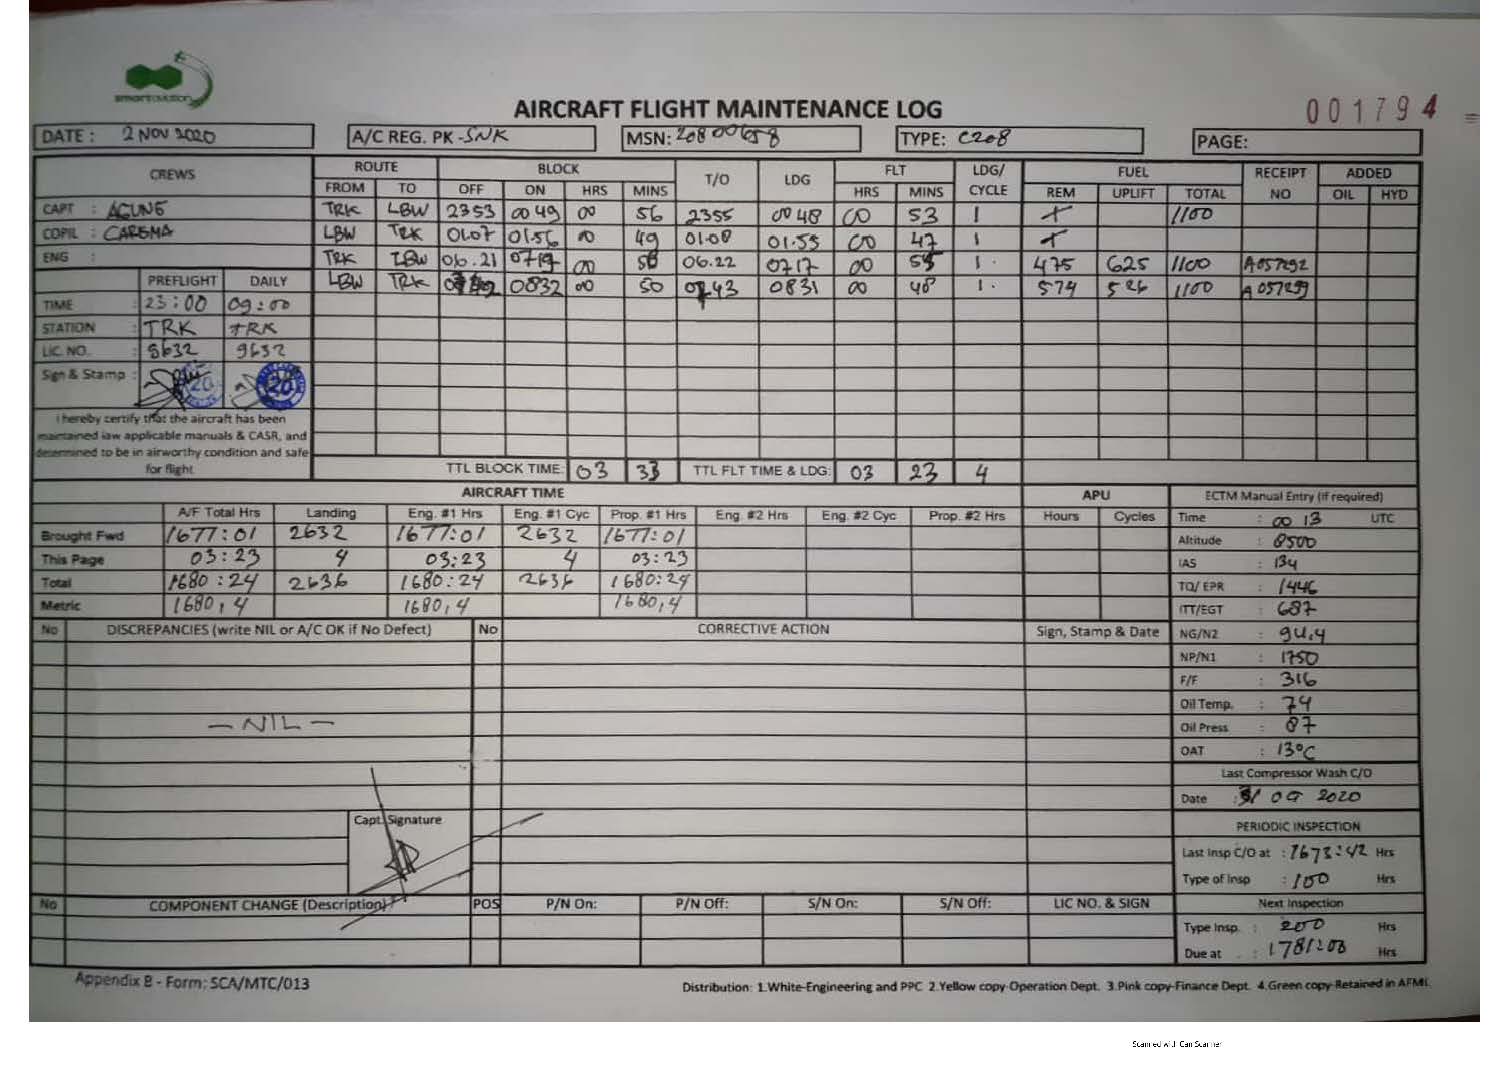 smart aviation
AIRCRAFT FLIGHT MAINTENANCE LOG
001794
DATE : 2 NOV 2020 A/C REG. PK-SNK MSN: 20800658 TYPE: C208 PAGE:
CREWS ROUTE BLOCK T/O LDG FLT LDG/ CYCLE FUEL RECEIPT NO ADDED
FROM TO OFF ON HRS MINS HRS MINS REM UPLIFT TOTAL OIL HYD
CAPT : AGUNG TRK LBW 2353 0049 00 56 2355 0048 00 53 1 + 1100
COPIL : CAREMA LBW TRK 01.07 01.56 00 49 01.08 01.55 00 47 1 +
ENG : TRK LBW 06.21 0719 00 58 06.22 0717 00 55 1. 475 625 1100 A057292
LBW TRK 0832 00 50 0743 0831 00 48 1. 574 526 1100 A057299
PREFLIGHT DAILY
TIME : 23:00 09:00
STATION : TRK TRK
LIC. NO. : 9632 9632
Sign & Stamp : 20 20
I hereby certify that the aircraft has been
maintained iaw applicable manuals & CASR, and
determined to be in airworthy condition and safe
for flight
TTL BLOCK TIME: 03 33 TTL FLT TIME & LDG: 03 23 4
AIRCRAFT TIME APU ECTM Manual Entry (if required)
A/F Total Hrs Landing Eng. #1 Hrs Eng. #1 Cyc Prop. #1 Hrs Eng. #2 Hrs Eng. #2 Cyc Prop. #2 Hrs Hours Cycles
Brought Fwd 1677:01 2632 1677:01 2632 1677:01
This Page 03:23 4 03:23 4 03:23
Total 1680:24 2636 1680:24 2636 1680:24
Metric 1680,4 1680,4 1680,4
Time : 00 13 UTC
Altitude : 8500
IAS : 134
TQ/ EPR : 1446
ITT/EGT : 687
NG/N2 : 94,4
NP/N1 : 1750
F/F : 316
Oil Temp. : 74
Oil Press : 87
OAT : 13°C
Last Compressor Wash C/O
Date : 31 OCT 2020
PERIODIC INSPECTION
Last Insp C/O at : 1673:42 Hrs
Type of Insp : 100 Hrs
Next Inspection
Type Insp. : 200 Hrs
Due at : Hrs
No DISCREPANCIES (write NIL or A/C OK if No Defect) No CORRECTIVE ACTION Sign, Stamp & Date
— NIL —
Capt. Signature
No COMPONENT CHANGE (Description) POS P/N On: P/N Off: S/N On: S/N Off: LIC NO. & SIGN
Appendix B - Form: SCA/MTC/013
Distribution: 1.White-Engineering and PPC 2.Yellow copy-Operation Dept. 3.Pink copy-Finance Dept. 4.Green copy-Retained in AFML
Scanned with CamScanner